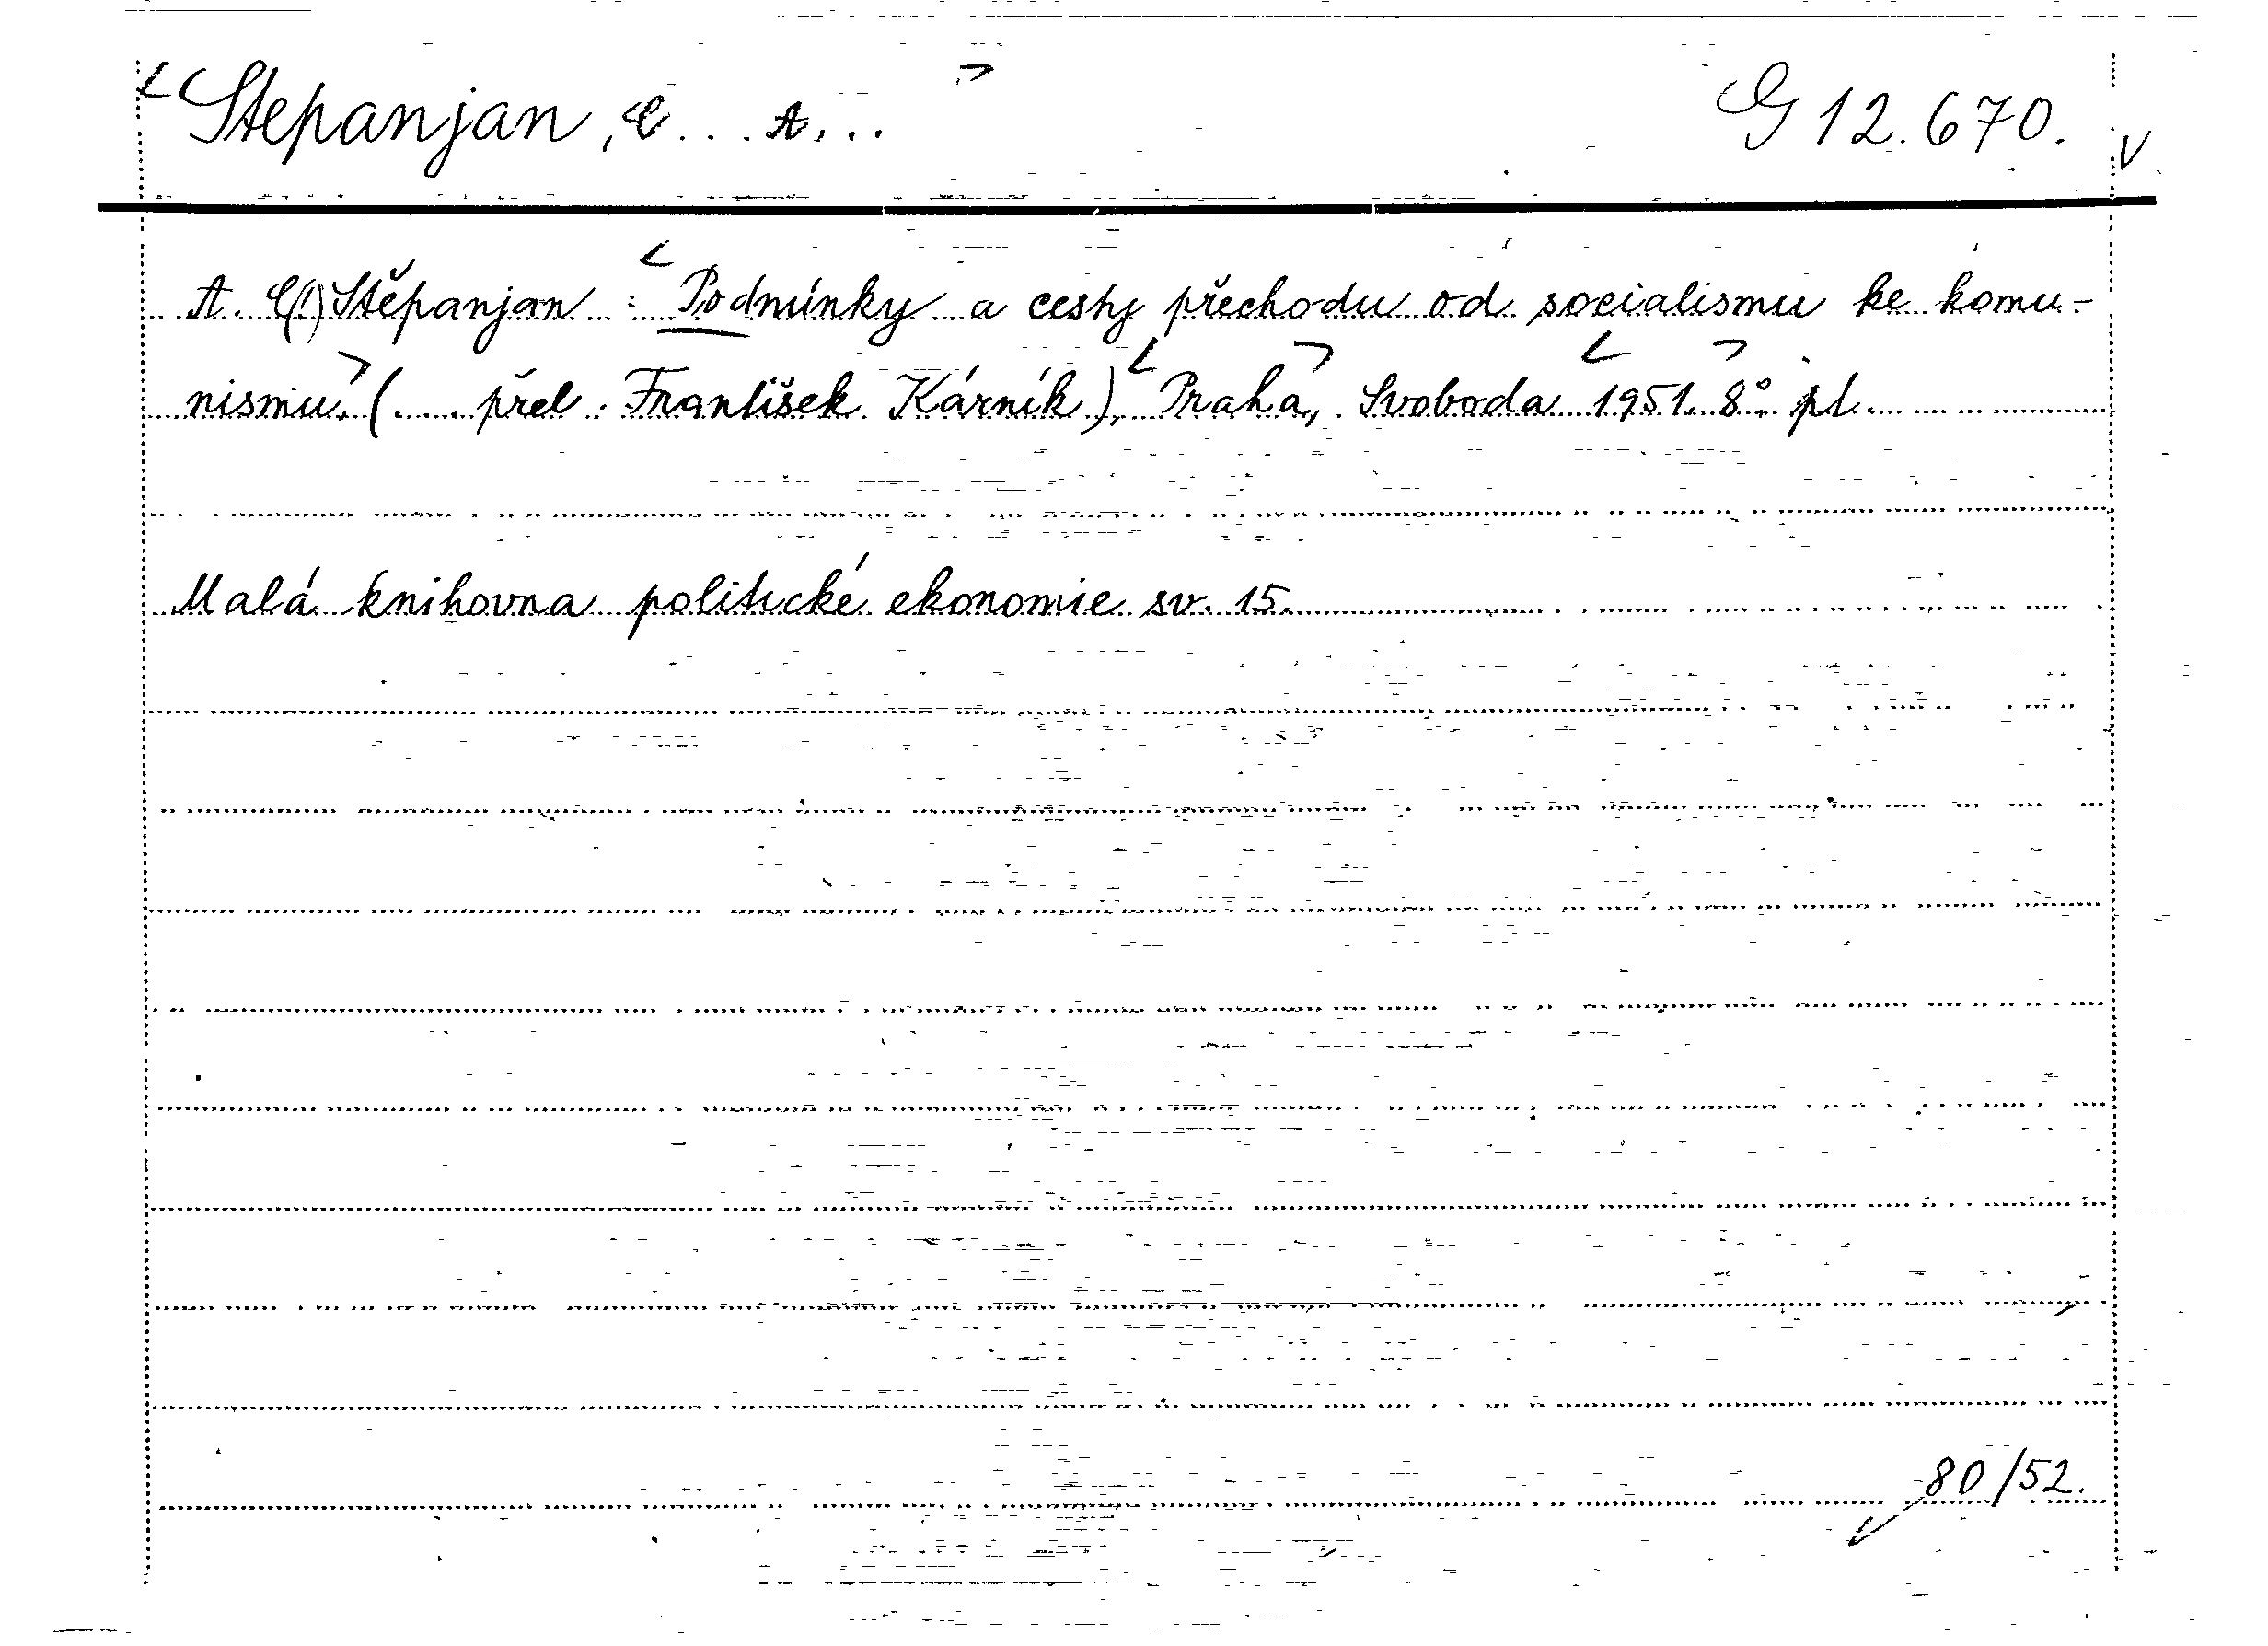 Stepanjan, C... A...
G 12.670.
A. C(!) Stěpanjan : Podmínky a cesty přechodu od socialismu ke komu-
nismu. (... přel. František Kárník), Praha, Svoboda 1951. 8°. pl.
Malá knihovna politické ekonomie sv. 15.
80/52.